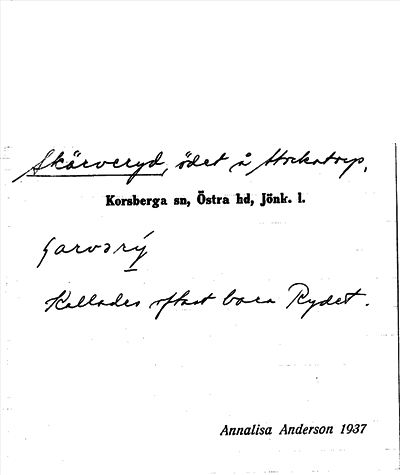 Skärveryd, ödet å Stockatorp,
Korsberga sn, Östra hd, Jönk. l.
Kallades oftast bara Rydet.
Annalisa Anderson 1937